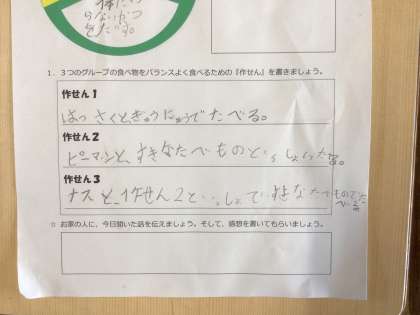 体に
らないかつ
をだす。
1. 3つのグループの食べ物をバランスよく食べるための『作せん』を書きましょう。
作せん1
はっさくとぎゅうにゅうでたべる。
作せん2
ピーマンと、すきなたべものといっしょにたべる。
作せん3
ナスと、作せん2といっしょで、すきなたべものでたべる
☆ お家の人に、今日聞いた話を伝えましょう。そして、感想を書いてもらいましょう。